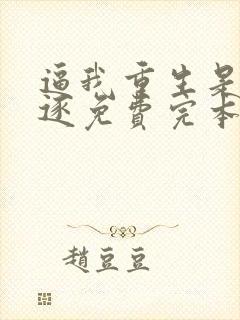 逼我重生是
逐免费完本
趙豆豆